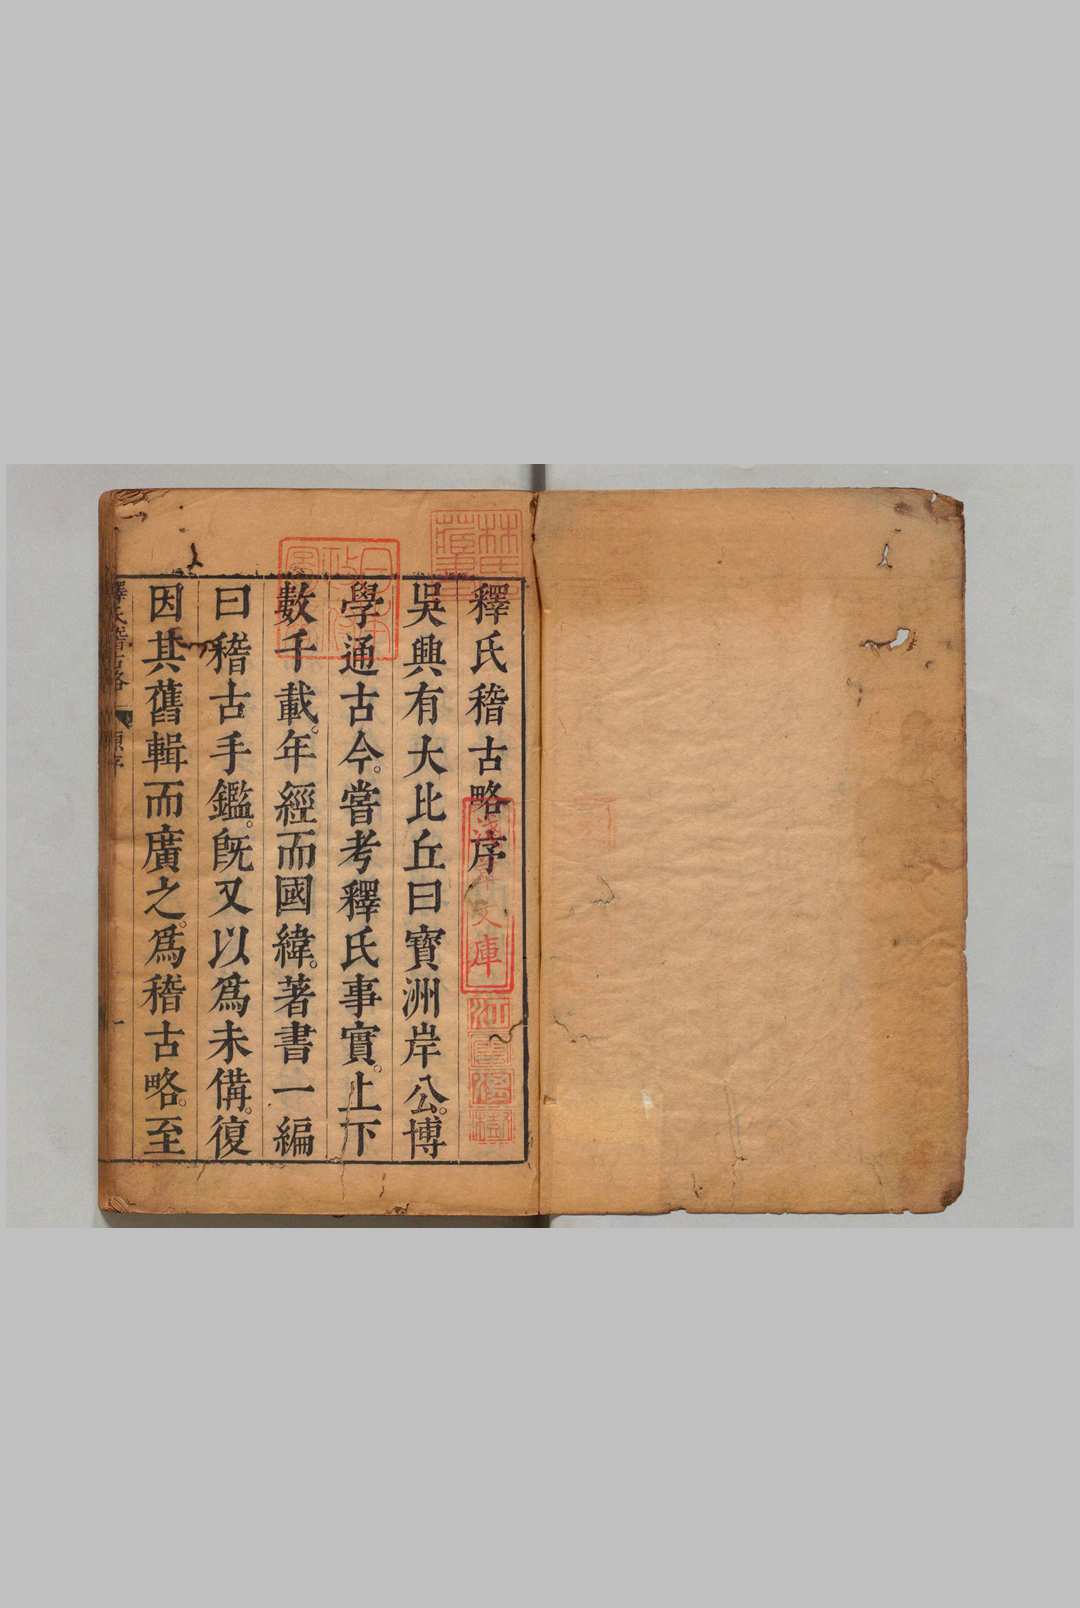 釋氏稽古略序
吳興有大比丘曰寶洲岸公。博
學通古今。嘗考釋氏事實。上下
數千載。年經而國緯。著書一編
曰稽古手鑑。旣又以爲未備。復
因其舊輯而廣之。爲稽古略。至
釋氏稽古略
林氏藏書
日本政府圖書
淺草文庫
江雲渭樹